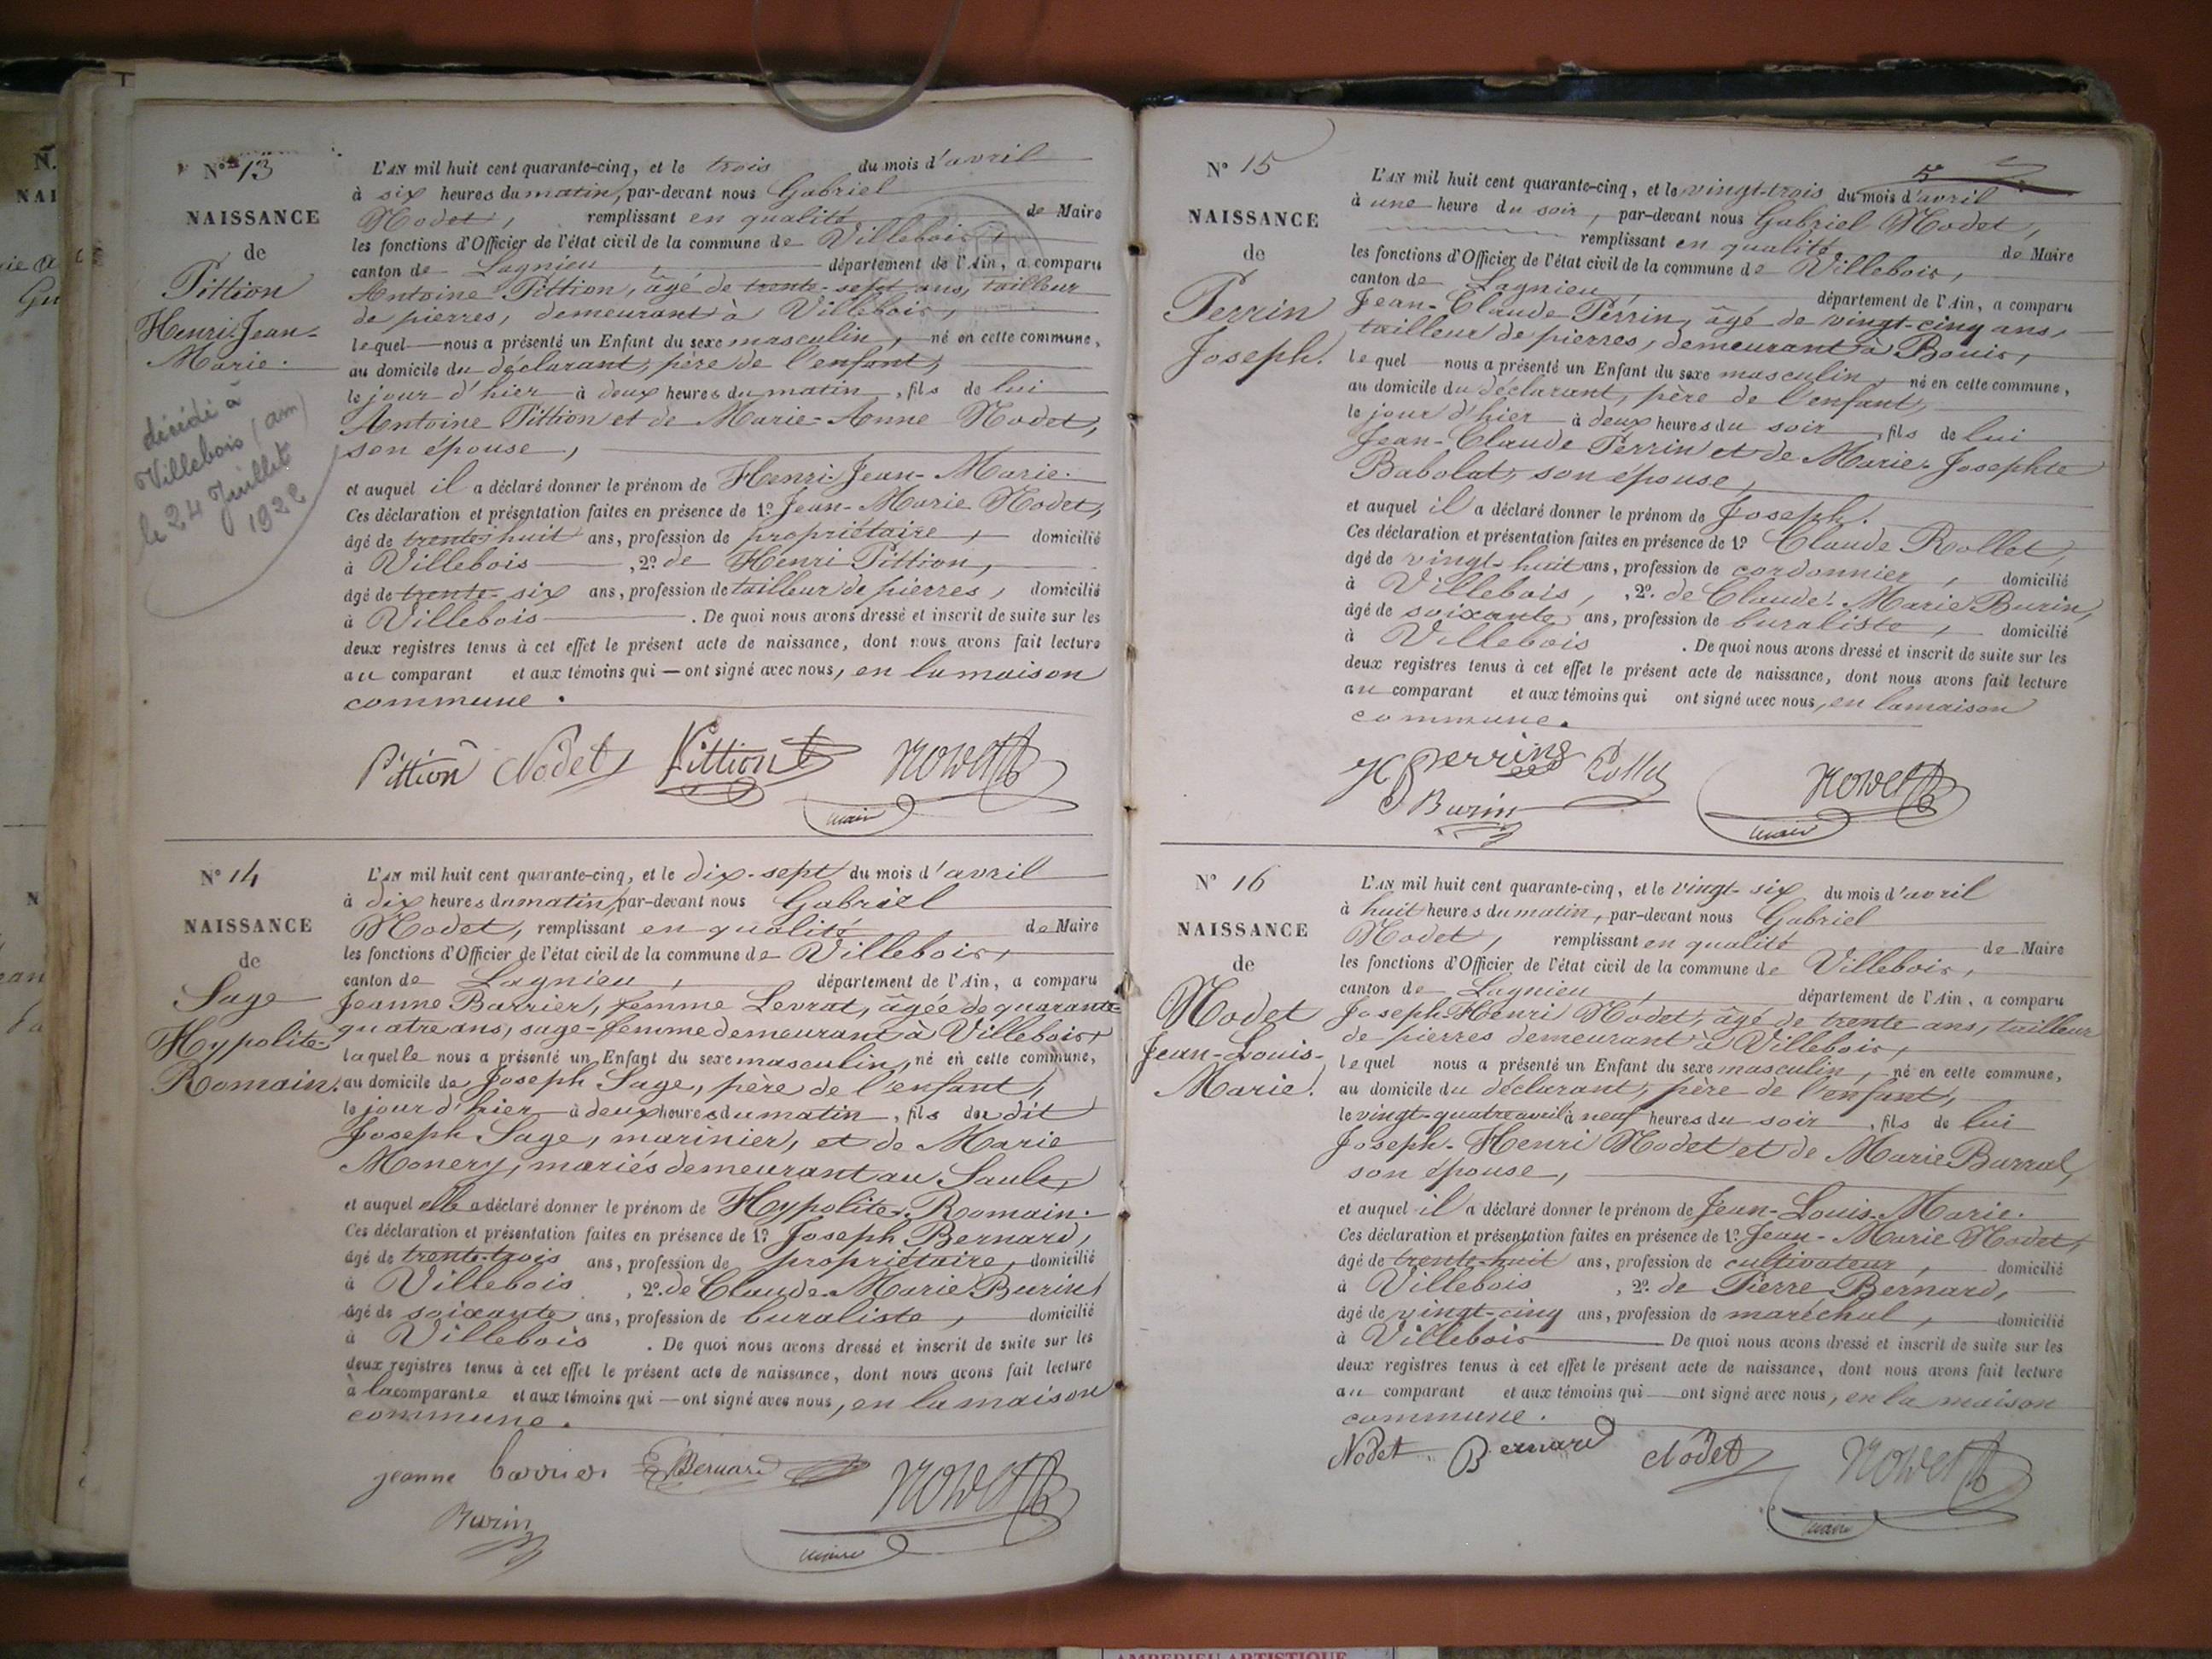 N° 13
NAISSANCE
de
Pittion
Henri-Jean-
Marie.
décédé à
Villebois (ain)
le 24 Juillet
1922
L'AN mil huit cent quarante-cinq, et le trois du mois d'avril
à six heures du matin, par-devant nous Gabriel
Nodet, remplissant en qualité de Maire
les fonctions d'Officier de l'état civil de la commune de Villebois,
canton de Lagnieu, département de l'Ain, a comparu
Antoine Pittion, âgé de trente-sept ans, tailleur
de pierres, demeurant à Villebois,
lequel nous a présenté un Enfant du sexe masculin, né en cette commune,
au domicile du déclarant, père de l'enfant,
le jour d'hier à deux heures du matin, fils de lui
Antoine Pittion et de Marie-Anne Nodet,
son épouse,
et auquel il a déclaré donner le prénom de Henri-Jean-Marie.
Ces déclaration et présentation faites en présence de 1° Jean-Marie Nodet,
âgé de trente-huit ans, profession de propriétaire, domicilié
à Villebois, 2° de Henri Pittion,
âgé de trente-six ans, profession de tailleur de pierres, domicilié
à Villebois. De quoi nous avons dressé et inscrit de suite sur les
deux registres tenus à cet effet le présent acte de naissance, dont nous avons fait lecture
au comparant et aux témoins qui — ont signé avec nous, en la maison
commune.
Pittion Nodet Pittion Nodet
maire
N° 14
NAISSANCE
de
Sage
Hypolite-
Romain.
L'AN mil huit cent quarante-cinq, et le dix-sept du mois d'avril
à dix heures du matin, par-devant nous Gabriel
Nodet, remplissant en qualité de Maire
les fonctions d'Officier de l'état civil de la commune de Villebois,
canton de Lagnieu, département de l'Ain, a comparu
Jeanne Barrier, femme Levrat, âgée de quarante-
quatre ans, sage-femme demeurant à Villebois,
laquelle nous a présenté un Enfant du sexe masculin, né en cette commune,
au domicile de Joseph Sage, père de l'enfant,
le jour d'hier à deux heures du matin, fils du dit
Joseph Sage, marinier, et de Marie
Monery, mariés demeurant au Sault,
et auquel elle a déclaré donner le prénom de Hypolite-Romain.
Ces déclaration et présentation faites en présence de 1° Joseph Bernard,
âgé de trente-trois ans, profession de propriétaire, domicilié
à Villebois, 2° de Claude-Marie Burin,
âgé de soixante ans, profession de buraliste, domicilié
à Villebois. De quoi nous avons dressé et inscrit de suite sur les
deux registres tenus à cet effet le présent acte de naissance, dont nous avons fait lecture
à la comparante et aux témoins qui — ont signé avec nous, en la maison
commune.
jeanne barrier Bernard Nodet
Burin
maire
N° 15
NAISSANCE
de
Perrin
Joseph.
L'AN mil huit cent quarante-cinq, et le vingt-trois du mois d'avril
à une heure du soir, par-devant nous Gabriel Nodet,
remplissant en qualité de Maire
les fonctions d'Officier de l'état civil de la commune de Villebois,
canton de Lagnieu département de l'Ain, a comparu
Jean-Claude Perrin, âgé de vingt-cinq ans,
tailleur de pierres, demeurant à Bouis,
lequel nous a présenté un Enfant du sexe masculin, né en cette commune,
au domicile du déclarant, père de l'enfant,
le jour d'hier à deux heures du soir, fils de lui
Jean-Claude Perrin et de Marie-Josephte
Babolat, son épouse,
et auquel il a déclaré donner le prénom de Joseph.
Ces déclaration et présentation faites en présence de 1° Claude Rollet,
âgé de vingt-huit ans, profession de cordonnier, domicilié
à Villebois, 2° de Claude-Marie Burin,
âgé de soixante ans, profession de buraliste, domicilié
à Villebois. De quoi nous avons dressé et inscrit de suite sur les
deux registres tenus à cet effet le présent acte de naissance, dont nous avons fait lecture
au comparant et aux témoins qui ont signé avec nous, en la maison
commune.
Perrin Rollet Nodet
Burin
maire
N° 16
NAISSANCE
de
Nodet
Jean-Louis-
Marie.
L'AN mil huit cent quarante-cinq, et le vingt-six du mois d'avril
à huit heures du matin, par-devant nous Gabriel
Nodet, remplissant en qualité de Maire
les fonctions d'Officier de l'état civil de la commune de Villebois,
canton de Lagnieu, département de l'Ain, a comparu
Joseph-Henri Nodet, âgé de trente ans, tailleur
de pierres demeurant à Villebois,
lequel nous a présenté un Enfant du sexe masculin, né en cette commune,
au domicile du déclarant, père de l'enfant,
le vingt-quatre avril à neuf heures du soir, fils de lui
Joseph-Henri Nodet et de Marie Barral,
son épouse,
et auquel il a déclaré donner le prénom de Jean-Louis-Marie.
Ces déclaration et présentation faites en présence de 1° Jean-Marie Nodet,
âgé de trente-huit ans, profession de cultivateur, domicilié
à Villebois, 2° de Pierre Bernard,
âgé de vingt-cinq ans, profession de maréchal, domicilié
à Villebois De quoi nous avons dressé et inscrit de suite sur les
deux registres tenus à cet effet le présent acte de naissance, dont nous avons fait lecture
au comparant et aux témoins qui — ont signé avec nous, en la maison
commune.
Nodet Bernard Nodet Nodet
maire
AMBERIEU ARTISTIQUE